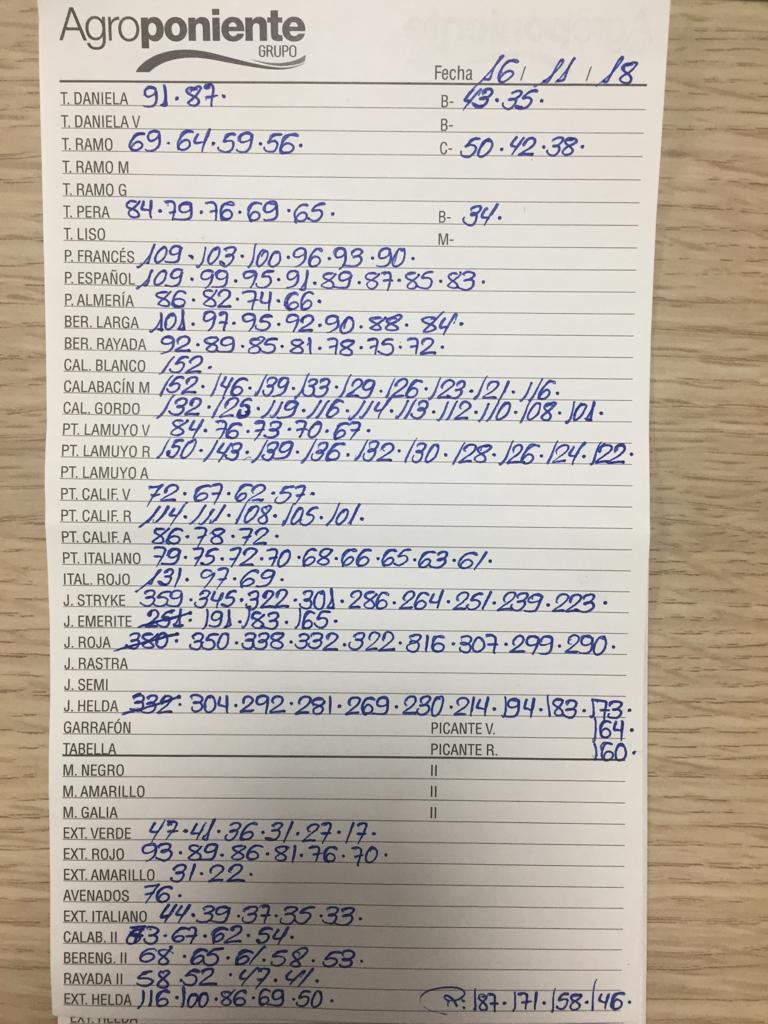 Agroponiente
GRUPO
Fecha 16 / 11 / 18
T. DANIELA 91·87· B- 43·35·
T. DANELA V B-
T. RAMO 69·64·59·56· C- 50·42·38·
T. RAMO M
T. RAMO G
T. PERA 84·79·76·69·65· B- 34·
T. LISO M-
P. FRANCÉS 109·103·100·96·93·90·
P. ESPAÑOL 109·99·95·91·89·87·85·83·
P. ALMERÍA 86·82·74·66·
BER. LARGA 101·97·95·92·90·88·84·
BER. RAYADA 92·89·85·81·78·75·72·
CAL. BLANCO 152·
CALABACÍN M 152·146·139·133·129·126·123·121·116·
CAL. GORDO 132·125·119·116·114·113·112·110·108·101·
PT. LAMUYO V 84·76·73·70·67·
PT. LAMUYO R 150·143·139·136·132·130·128·126·124·122·
PT. LAMUYO A
PT. CALIF. V 72·67·62·57·
PT. CALIF. R 114·111·108·105·101·
PT. CALIF. A 86·78·72·
PT. ITALIANO 79·75·72·70·68·66·65·63·61·
ITAL. ROJO 131·97·69·
J. STRYKE 359·345·322·301·286·264·251·239·223·
J. EMERITE 251· 191·183·165·
J. ROJA 380· 350·338·332·322·316·307·299·290·
J. RASTRA
J. SEMI
J. HELDA 332· 304·292·281·269·230·214·194·183·173·
GARRAFÓN PICANTE V. 164·
TABELLA PICANTE R. 160·
M. NEGRO II
M. AMARILLO II
M. GALIA II
EXT. VERDE 47·41·36·31·27·17·
EXT. ROJO 93·89·86·81·76·70·
EXT. AMARILLO 31·22·
AVENADOS 76·
EXT. ITALIANO 44·39·37·35·33·
CALAB. II 73·67·62·54·
BERENG. II 68·65·61·58·53·
RAYADA II 58 52·47·41·
EXT. HELDA 116·100·86·69·50· R. 187·171·158·146·